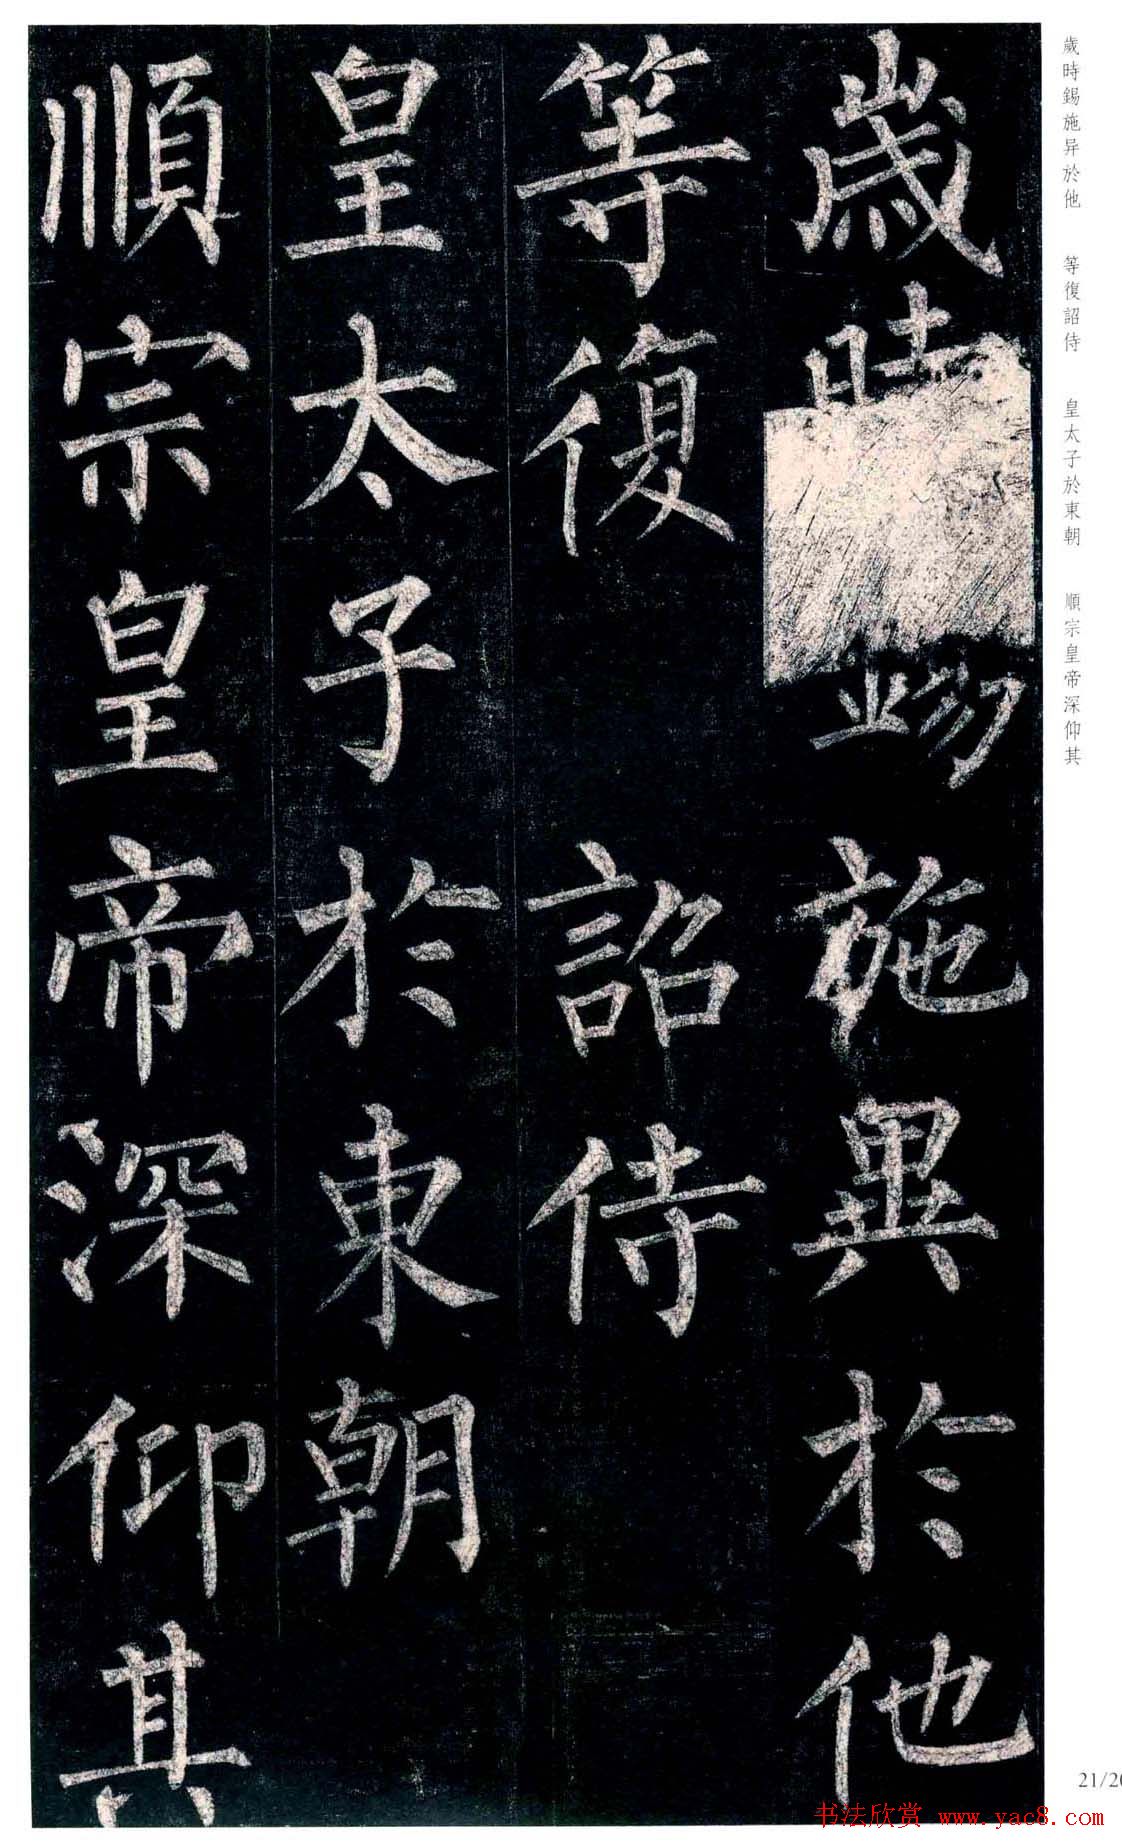 歲時錫施異於他
等復詔侍
皇太子於東朝
順宗皇帝深仰其
歲時錫施异於他 等復詔侍 皇太子於東朝 順宗皇帝深仰其
21/20
书法欣赏 www.yac8.com